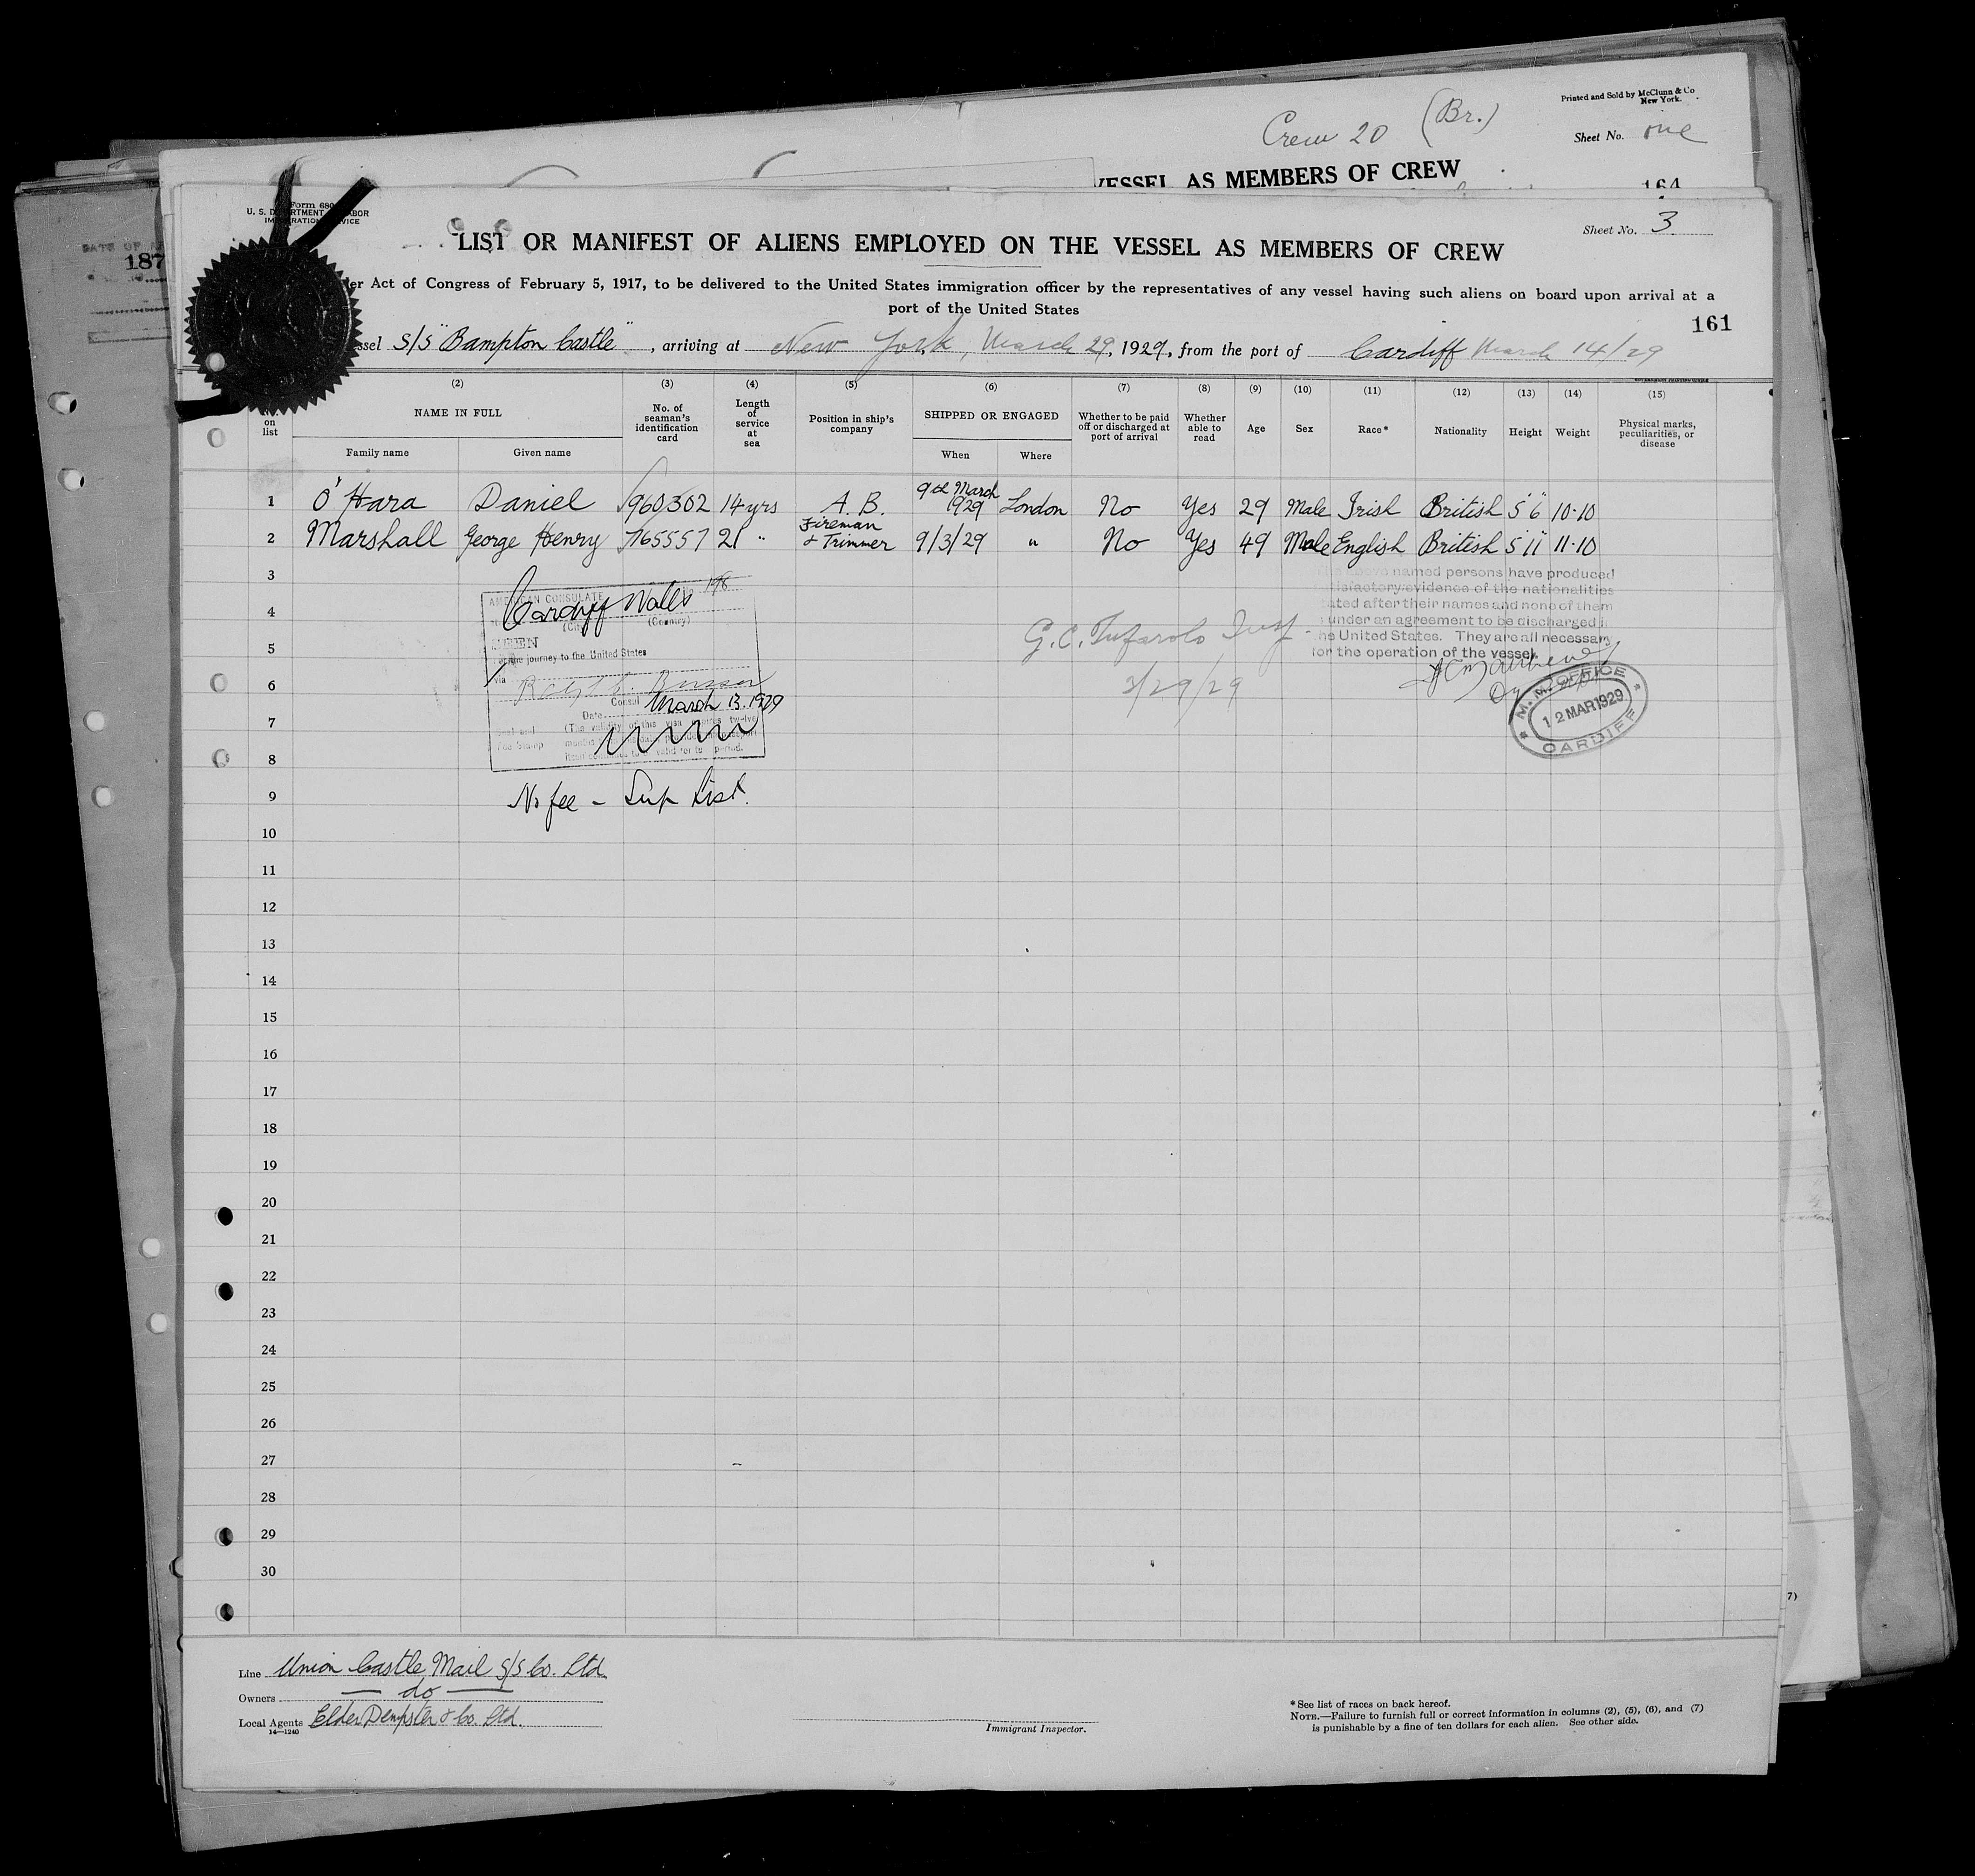 Printed and Sold by McClunn & Co
New York.
Crew 20 (Br.)
Sheet No. one
VESSEL AS MEMBERS OF CREW
164
187
Form 680
U. S. DEPARTMENT LABOR
IMMIGRATION SERVICE
Sheet No. 3
LIST OR MANIFEST OF ALIENS EMPLOYED ON THE VESSEL AS MEMBERS OF CREW
er Act of Congress of February 5, 1917, to be delivered to the United States immigration officer by the representatives of any vessel having such aliens on board upon arrival at a
port of the United States
161
ssel S/S "Bampton Castle", arriving at New York, March 29, 1929, from the port of Cardiff March 14/29
(2) (3) (4) (5) (6) (7) (8) (9) (10) (11) (12) (13) (14) (15)
on list
NAME IN FULL
Family name Given name
No. of seaman's identification card
Length of service at sea
Position in ship's company
SHIPPED OR ENGAGED
When Where
Whether to be paid off or discharged at port of arrival
Whether able to read
Age Sex Race* Nationality Height Weight
Physical marks, peculiarities, or disease
1 O'Hara Daniel 960302 14 yrs A. B. 9th March 1929 London No Yes 29 Male Irish British 5'6" 10·10
2 Marshall George Henry 765557 21 " Fireman & Trimmer 9/3/29 " No Yes 49 Male English British 5'11" 11·10
3
4
5
6
7
8
9
10
11
12
13
14
15
16
17
18
19
20
21
22
23
24
25
26
27
28
29
30
AMERICAN CONSULATE
Cardiff Wales 198
(City) (Country)
SEEN
For the journey to the United States
via
Consul
Date March 13. 1929
(The validity of this visa expires twelve
Fee Stamp
valid for the period.
No fee - Sup List.
G. C. Tufarolo Insp
3/29/29
above named persons have produced
satisfactory evidence of the nationalities
stated after their names and none of them
under an agreement to be discharged in
the United States. They are all necessary
for the operation of the vessel.
M. M. OFFICE
12 MAR 1929
CARDIFF
Line Union Castle Mail S/S Co. Ltd.
Owners — do —
Local Agents Elder Dempster & Co. Ltd.
14—1240
Immigrant Inspector.
*See list of races on back hereof.
NOTE.—Failure to furnish full or correct information in columns (2), (5), (6), and (7)
is punishable by a fine of ten dollars for each alien. See other side.
7)